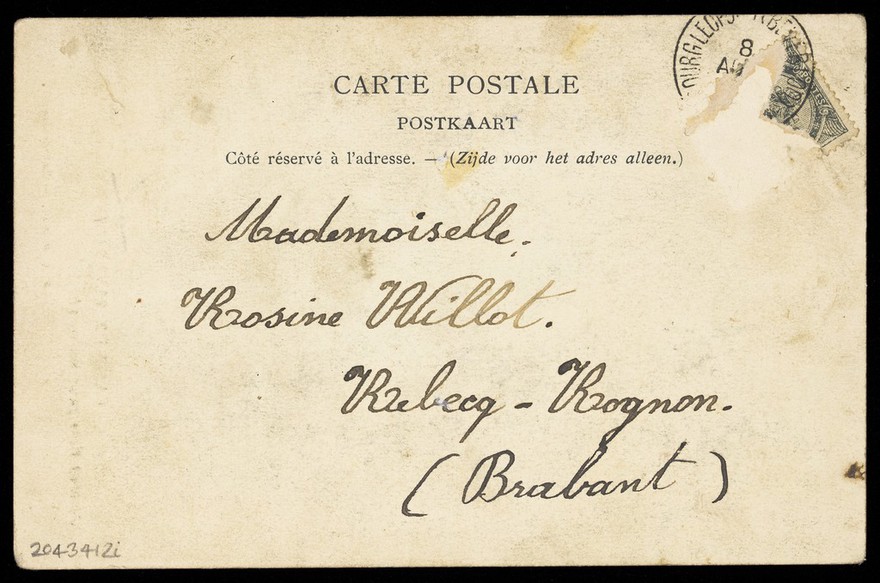 CARTE POSTALE
POSTKAART
Côté réservé à l'adresse. — (Zijde voor het adres alleen.)
8
Mademoiselle.
Rosine Willot.
Rebecq - Rognon.
(Brabant)
2043412i